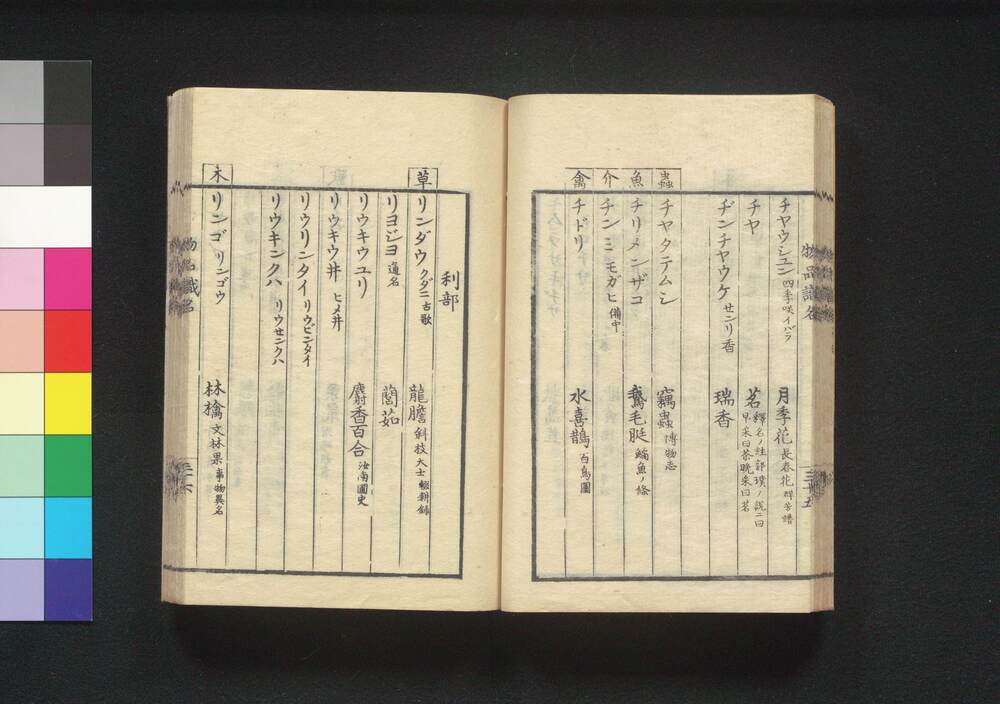 チヤウシユン 四季咲イバラ 月季花 長春花 群芳譜
チヤ 茗 釋名ノ註郭璞ノ説ニ曰早采曰茶晩采曰茗
ヂンチヤウケ センリ香 瑞香
蟲
チヤタテムシ 竊蟲 博物志
魚
チリメンザコ 鵞毛脡 鱅魚ノ條
介
チンミ モガヒ 備中
禽
チドリ 水喜鵲 百鳥圖
物品識名
三十五
利部
草
リンダウ クダニ 古歌 龍膽 斜枝大士 輟耕録
リヨジヨ 通名 䕡茹
リウキウユリ 麝香百合 汝南圃史
リウキウ井 ヒメ井
リウリンタイ リウビンタイ
リウキンクハ リウセンクハ
木
リンゴ リンゴウ 林檎 文林果 事物異名
物品識名